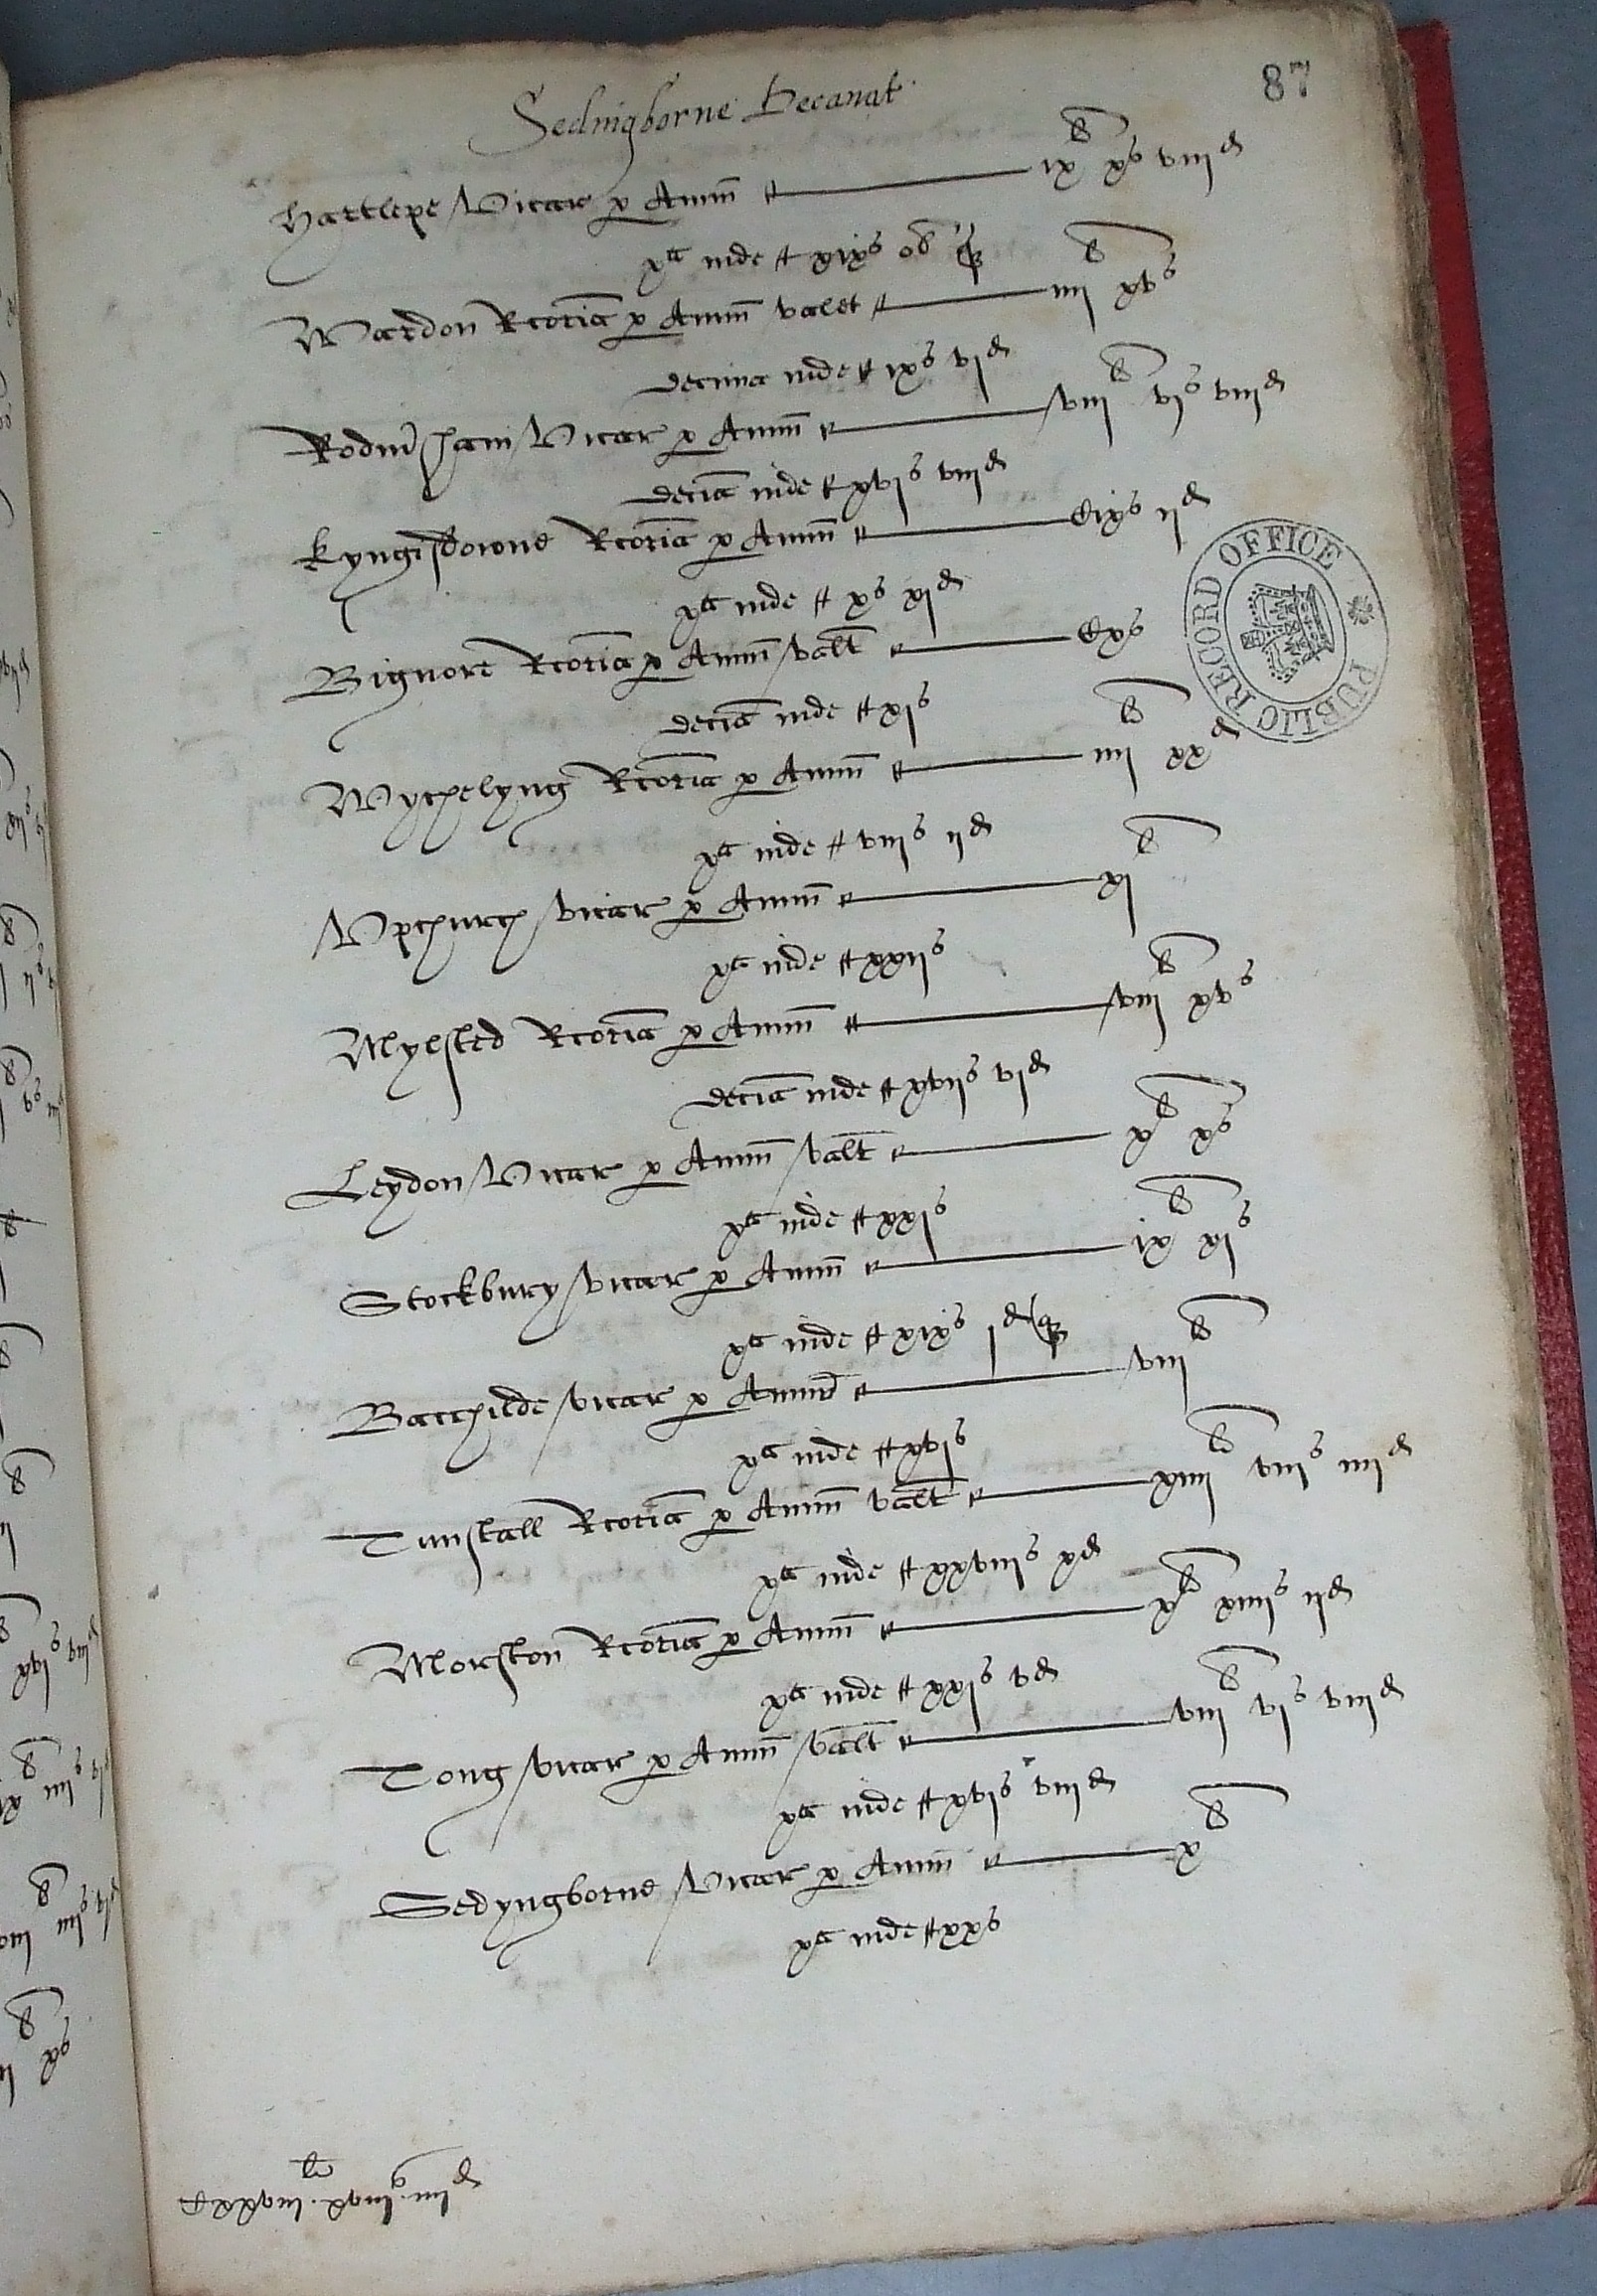 87
Sedingborne Decanat
Hartlepe Vicar p Annu ix li xs viijd
xa inde xixs ob q
Wardon Rcoria p Annu valet iiij li xvs
decima inde ixs vjd
Rodmsham Vicar p Annu viij li vjs viijd
decia inde xvjs viijd
Kyngisdowne Rcoria p Annu Cixs ijd
xa inde xs xjd
Bignore Rcoria p Annu valt Cxs
decia inde xjs
Wychelyng Rcoria p Annu iiij li xxd
xa inde viijs ijd
Upchurch vicar p Annu xj li
xa inde xxijs
Mylsted Rcoria p Annu viij li xvs
decia inde xvijs vjd
Leydon Vicar p Annu valt x li xs
xa inde xxjs
Stockbury vicar p Annu ix li xjs
xa inde xixs jd q
Bacchilde vicar p Annu viij li
xa inde xvjs
Tunstall Rcoria p Annu valt xiiij li viijs iiijd
xa inde xxviijs xd
Morston Rcoria p Annu x li xiiijs ijd
xa inde xxjs vd
Tong vicar p Annu valt viij li vjs viijd
xa inde xvjs viijd
Sedyngborne Vicar p Annu x li
xa inde xxs
PUBLIC RECORD OFFICE